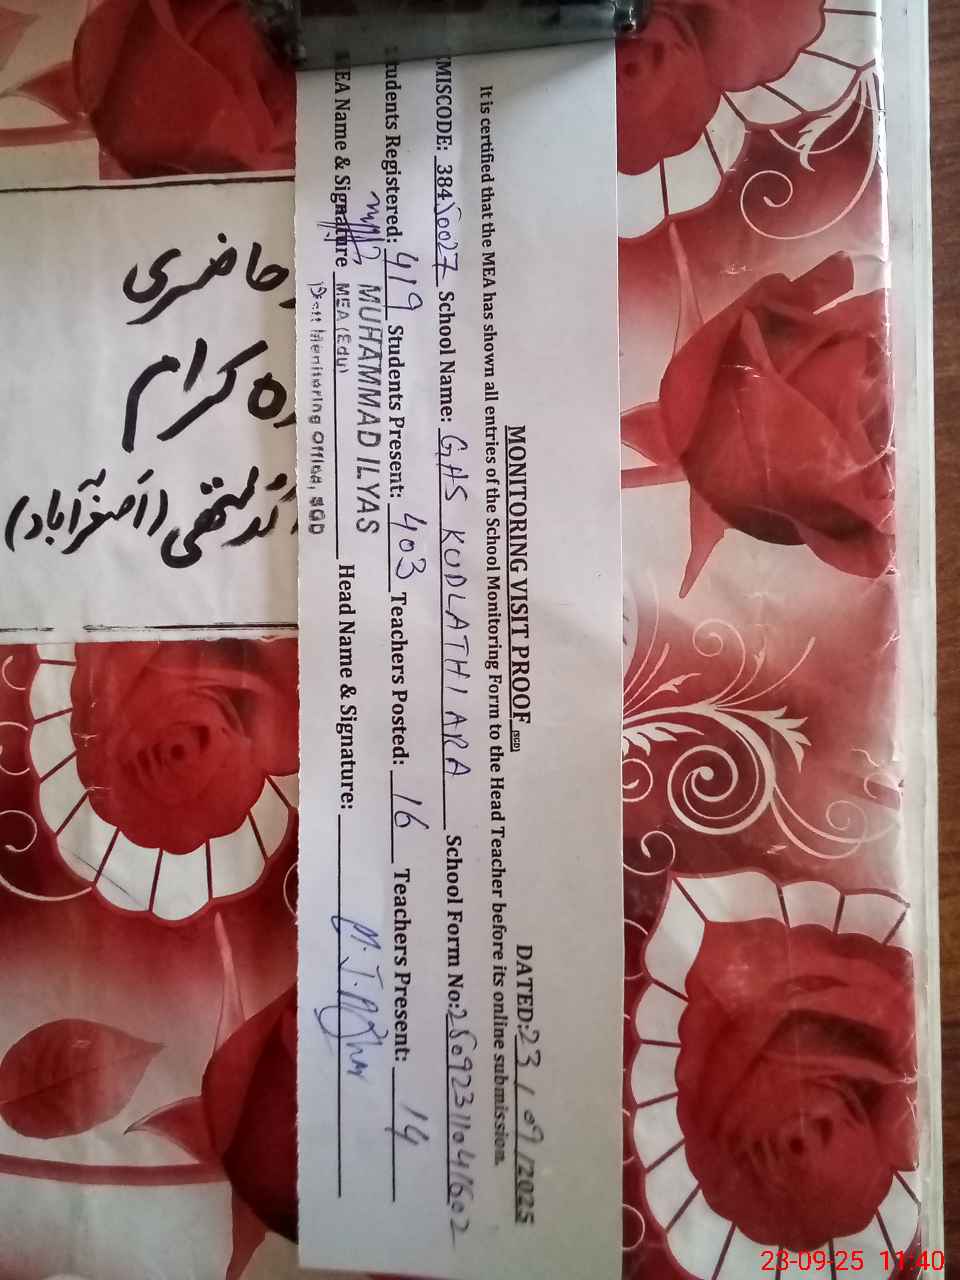 MONITORING VISIT PROOF (SGD) DATED: 23/09/2025
It is certified that the MEA has shown all entries of the School Monitoring Form to the Head Teacher before its online submission.
MISCODE: 38450027 School Name: GHS KUDLATHI ARA School Form No: 25092311041602
tudents Registered: 419 Students Present: 403 Teachers Posted: 16 Teachers Present: 14
MUHAMMAD ILYAS
EA Name & Signature Head Name & Signature:
MEA (Edu)
Distt Monitoring Office, SGD
حاضری
کرام
23-09-25 11:40